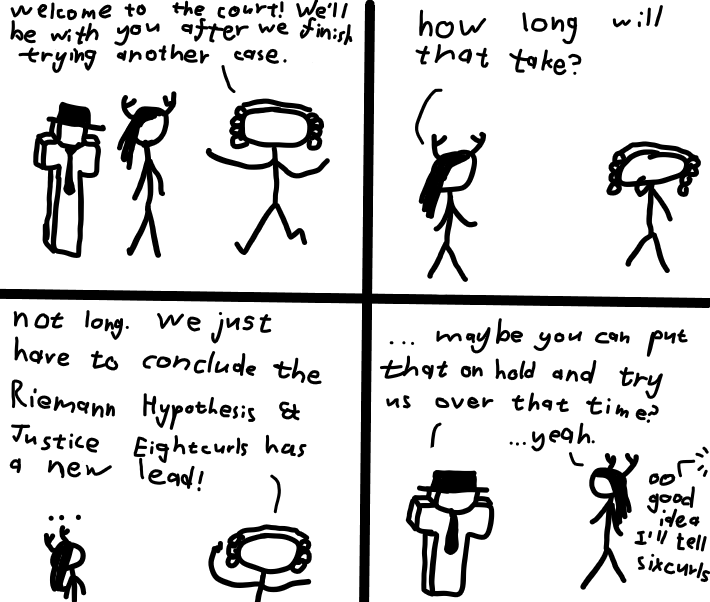 welcome to the court! We'll
be with you after we finish
trying another case.
how long will
that take?
not long. We just
have to conclude the
Riemann Hypothesis &
Justice Eightcurls has
a new lead!
...
... maybe you can put
that on hold and try
us over that time?
...yeah.
oo
good
idea
I'll tell
sixcurls